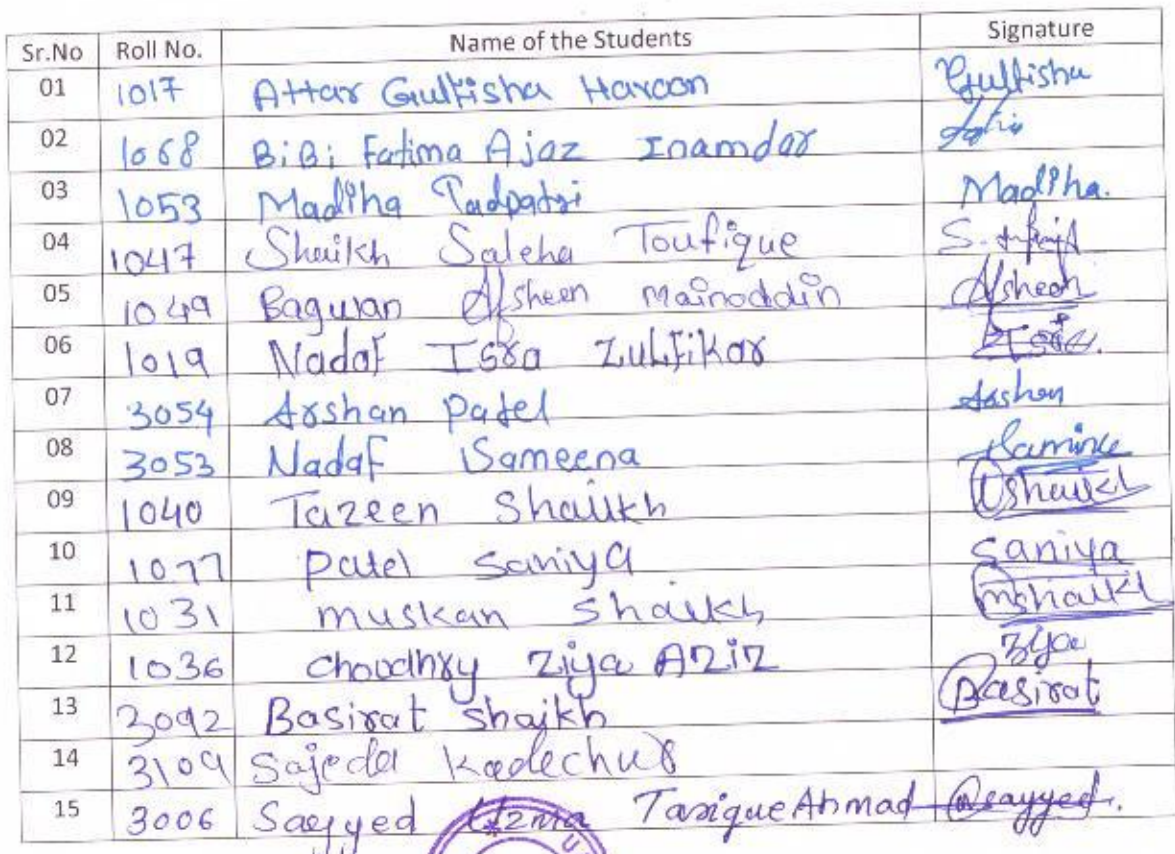 Sr.No Roll No. Name of the Students Signature
01 1017 Attar Gulfisha Haroon Gulfisha
02 1068 BiBi Fatima Ajaz Inamdar
03 1053 Madiha Tadpatri Madiha.
04 1047 Shaikh Saleha Toufique S.
05 1049 Bagwan Afsheen Mainoddin Afsheen
06 1019 Nadaf Isra Zulfikar
07 3054 Arshan Patel Arshan
08 3053 Nadaf Sameena
09 1040 Tazeen Shaikh Tshaikh
10 1077 Patel Saniya Saniya
11 1031 Muskan Shaikh mshaikh
12 1036 Choudhry Ziya AZiZ Ziya
13 3092 Basirat Shaikh Basirat
14 3109 Sajeda Kadechur
15 3006 Sayyed Uzma Tarique Ahmad sayyed.